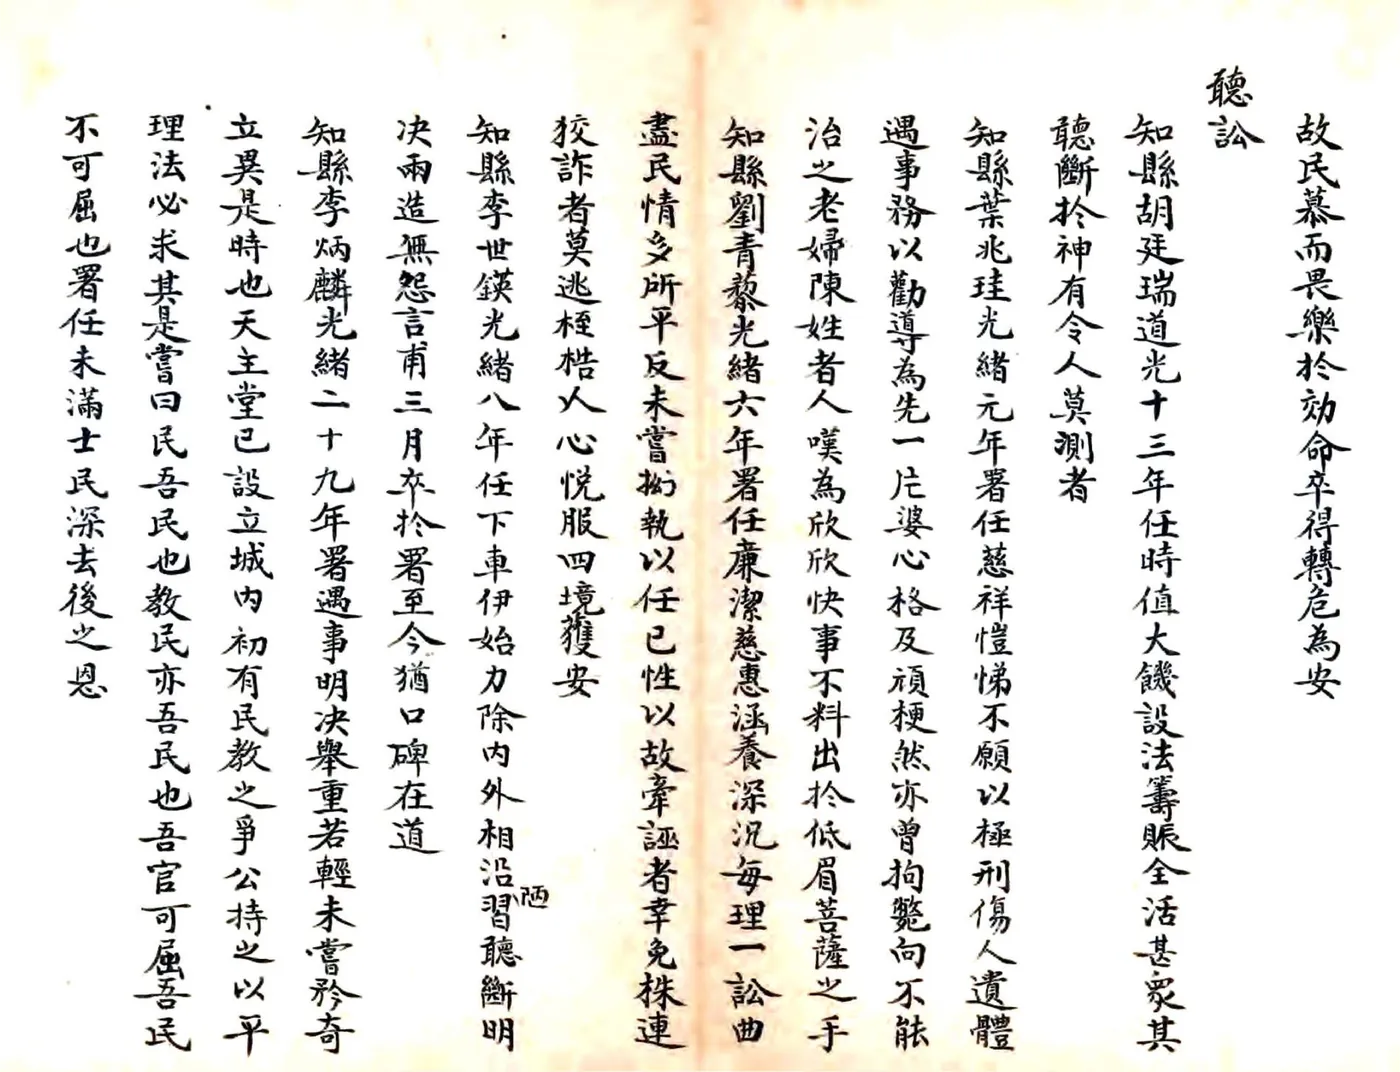 故民慕而畏樂於効命卒得轉危為安
聽訟
知縣胡廷瑞道光十三年任時值大饑設法籌賑全活甚眾其
聽斷扵神有令人莫測者
知縣葉兆珪光緒元年署任慈祥愷悌不願以極刑傷人遺體
遇事務以勸導為先一片婆心格及頑梗然亦曾拘斃向不能
治之老婦陳姓者人嘆為欣欣快事不料出扵低眉菩薩之手
知縣劉青藜光緒六年署任廉潔慈惠涵養深沉每理一訟曲
盡民情多所平反未嘗拗執以任已性以故牽誣者幸免株連
狡詐者莫逃桎梏人心悅服四境獲安
知縣李世鍈光緒八年任下車伊始力除内外相沿陋習聽斷明
决兩造無怨言甫三月卒扵署至今猶口碑在道
知縣李炳麟光緒二十九年署遇事明决舉重若輕未嘗矜奇
立異是時也天主堂已設立城内初有民教之爭公持之以平
理法必求其是嘗曰民吾民也教民亦吾民也吾官可屈吾民
不可屈也署任未滿士民深去後之恩